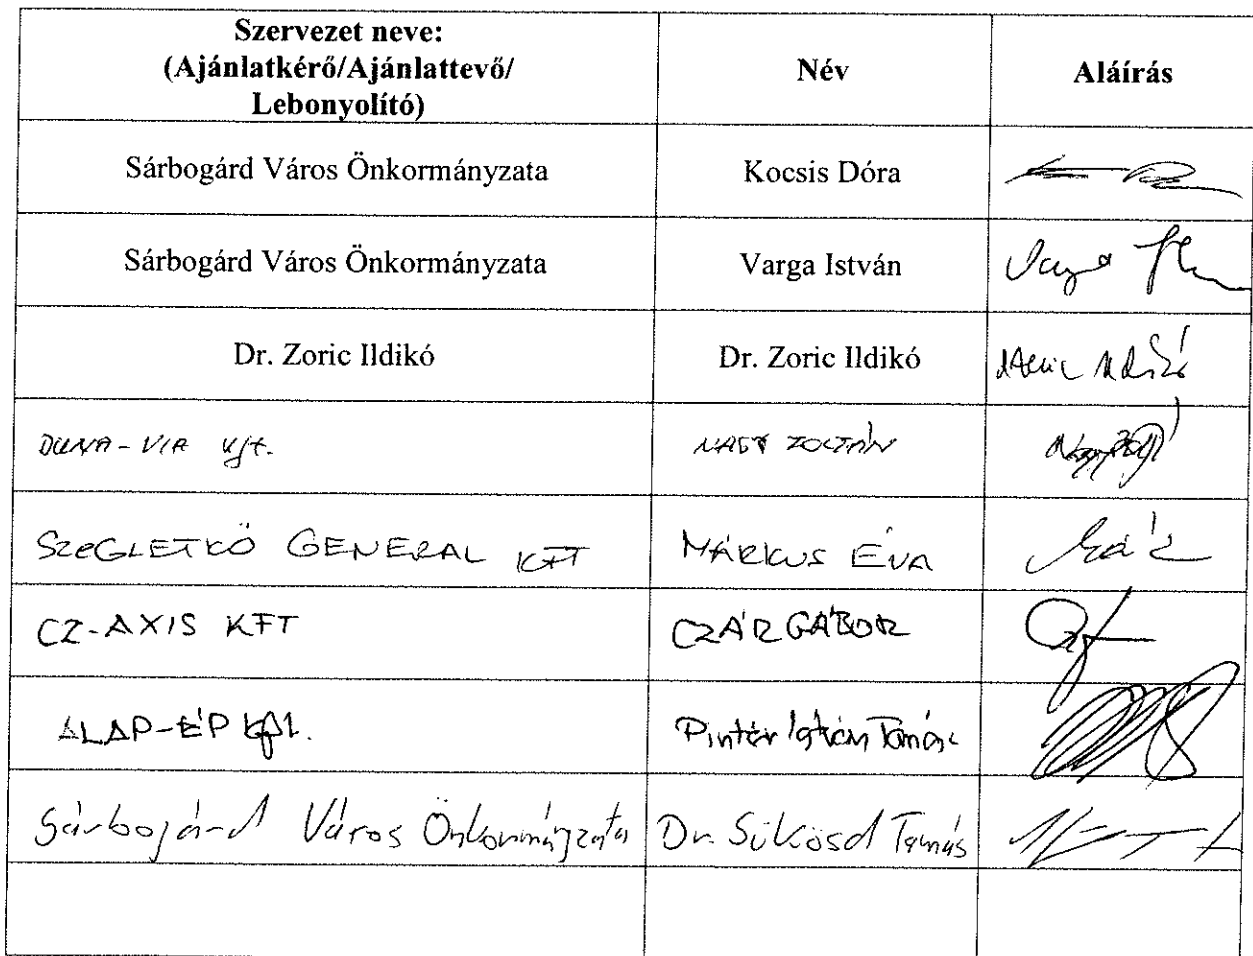 Szervezet neve:
(Ajánlatkérő/Ajánlattevő/
Lebonyolító)
Név
Aláírás
Sárbogárd Város Önkormányzata
Kocsis Dóra
Sárbogárd Város Önkormányzata
Varga István
Dr. Zoric Ildikó
Dr. Zoric Ildikó
DUNA-VIA Kft.
NAGY ZOLTÁN
SZEGLETKŐ GENERAL KFT
MÁRKUS ÉVA
CZ-AXIS KFT
CZÁR GÁBOR
ALAP-ÉP Kft.
Pintér István Tamás
Sárbogárd Város Önkormányzata
Dr. Sükösd Tamás